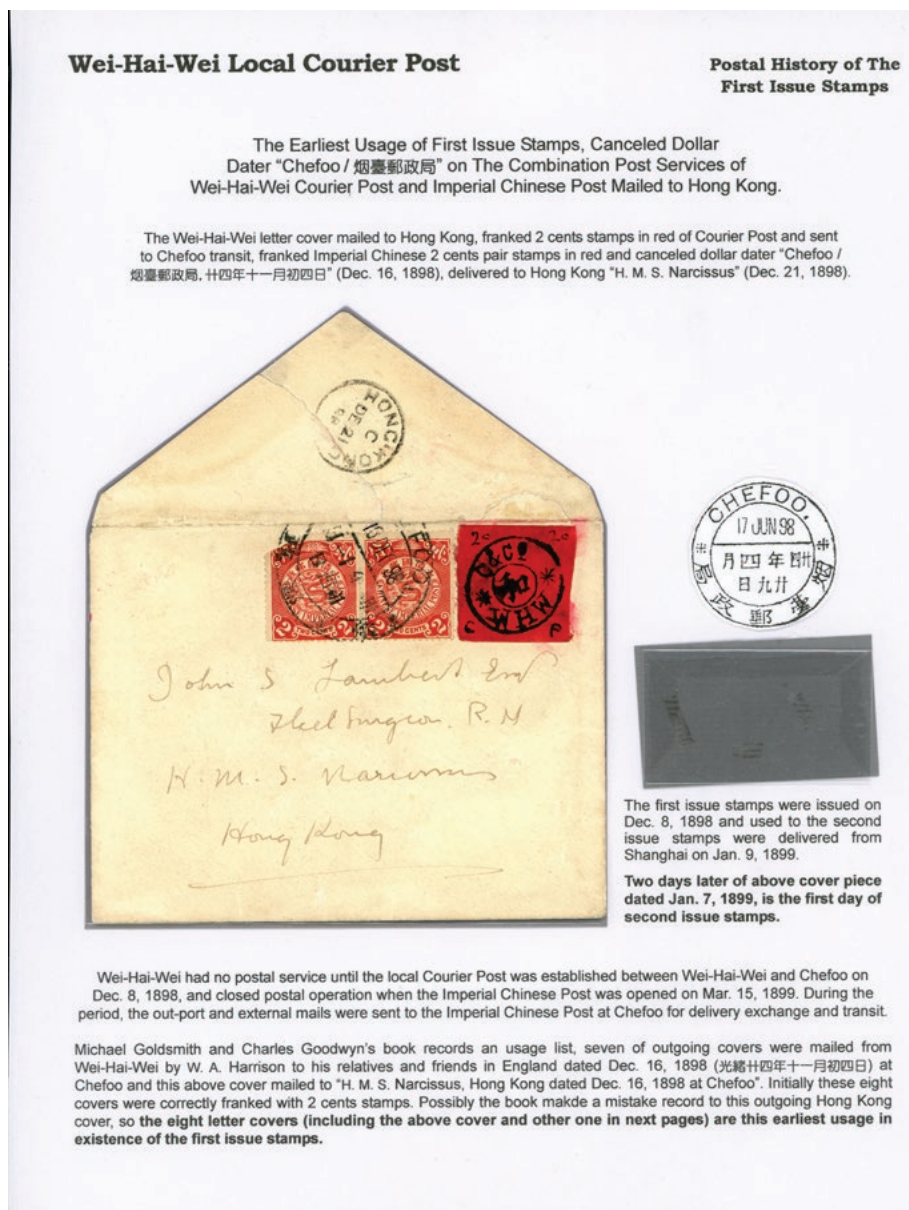 Wei-Hai-Wei Local Courier Post
Postal History of The
First Issue Stamps
The Earliest Usage of First Issue Stamps, Canceled Dollar
Dater “Chefoo / 烟臺郵政局” on The Combination Post Services of
Wei-Hai-Wei Courier Post and Imperial Chinese Post Mailed to Hong Kong.
The Wei-Hai-Wei letter cover mailed to Hong Kong, franked 2 cents stamps in red of Courier Post and sent
to Chefoo transit, franked Imperial Chinese 2 cents pair stamps in red and canceled dollar dater “Chefoo /
烟臺郵政局, 廿四年十一月初四日” (Dec. 16, 1898), delivered to Hong Kong “H. M. S. Narcissus” (Dec. 21, 1898).
HONG KONG
C
DE 21
98
2c 2c
C & Co
W H W
C P
2 TWO CENTS 2
2 CENTS 2
John S Lambert Esq
Fleet Surgeon. R. N
H. M. S. Narcissus
Hong Kong
CHEFOO.
17 JUN 98
月四年廿四
日九廿
局政郵臺烟
The first issue stamps were issued on
Dec. 8, 1898 and used to the second
issue stamps were delivered from
Shanghai on Jan. 9, 1899.
Two days later of above cover piece
dated Jan. 7, 1899, is the first day of
second issue stamps.
Wei-Hai-Wei had no postal service until the local Courier Post was established between Wei-Hai-Wei and Chefoo on
Dec. 8, 1898, and closed postal operation when the Imperial Chinese Post was opened on Mar. 15, 1899. During the
period, the out-port and external mails were sent to the Imperial Chinese Post at Chefoo for delivery exchange and transit.
Michael Goldsmith and Charles Goodwyn's book records an usage list, seven of outgoing covers were mailed from
Wei-Hai-Wei by W. A. Harrison to his relatives and friends in England dated Dec. 16, 1898 (光緒廿四年十一月初四日) at
Chefoo and this above cover mailed to “H. M. S. Narcissus, Hong Kong dated Dec. 16, 1898 at Chefoo”. Initially these eight
covers were correctly franked with 2 cents stamps. Possibly the book makde a mistake record to this outgoing Hong Kong
cover, so the eight letter covers (including the above cover and other one in next pages) are this earliest usage in
existence of the first issue stamps.